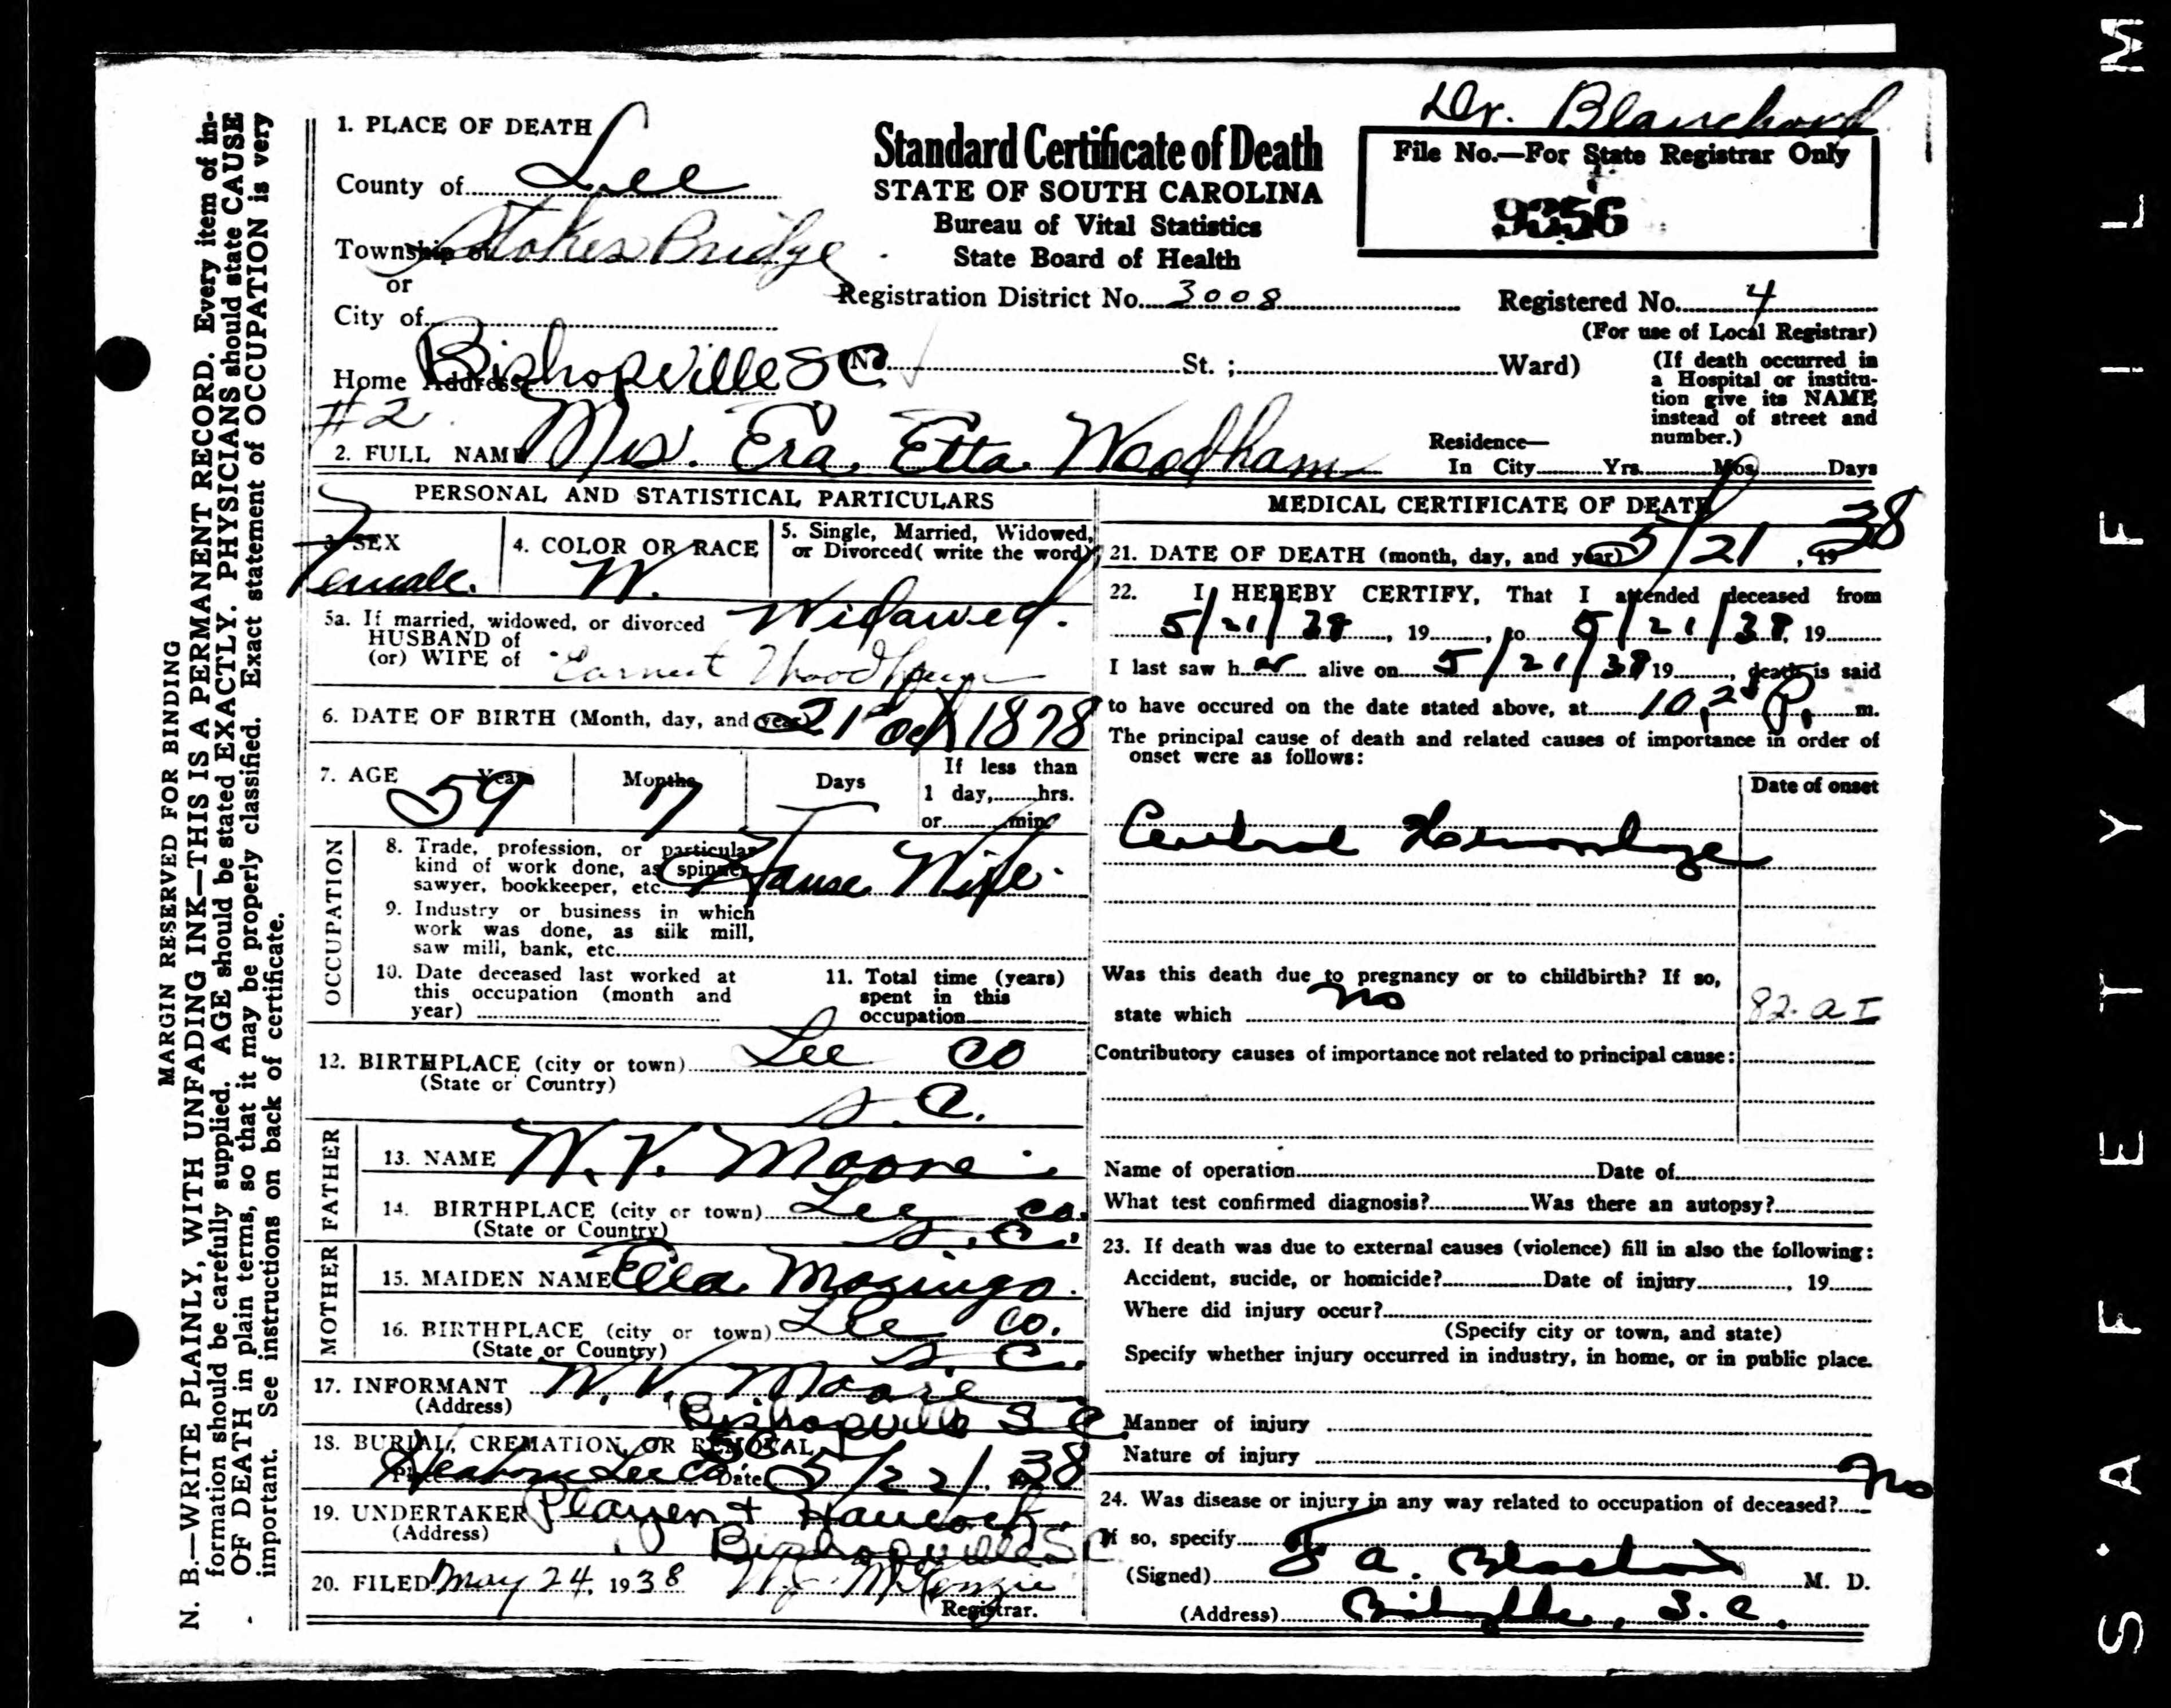 Dr. Blanchard
1. PLACE OF DEATH
County of Lee
Township of Stokes Bridge
or
City of
Home Address Bishopville S C
#2
Standard Certificate of Death
STATE OF SOUTH CAROLINA
Bureau of Vital Statistics
State Board of Health
File No.—For State Registrar Only
9356
Registration District No. 3008
Registered No. 4
(For use of Local Registrar)
No. St. ; Ward)
(If death occurred in
a Hospital or institu-
tion give its NAME
instead of street and
number.)
2. FULL NAME Mrs. Era Etta Woodham
Residence—
In City Yrs. Mos. Days
PERSONAL AND STATISTICAL PARTICULARS
3. SEX
Female.
4. COLOR OR RACE
W.
5. Single, Married, Widowed,
or Divorced( write the word)
Widowed.
5a. If married, widowed, or divorced
HUSBAND of
(or) WIFE of Earnest Woodham
6. DATE OF BIRTH (Month, day, and year) 21 Oct 1878
7. AGE Years 59 Months 7 Days
If less than
1 day, hrs.
or min.
OCCUPATION
8. Trade, profession, or particular
kind of work done, as spinner,
sawyer, bookkeeper, etc. House Wife.
9. Industry or business in which
work was done, as silk mill,
saw mill, bank, etc.
10. Date deceased last worked at
this occupation (month and
year)
11. Total time (years)
spent in this
occupation
12. BIRTHPLACE (city or town) Lee Co
(State or Country) S. C.
FATHER
13. NAME W. V. Moore
14. BIRTHPLACE (city or town) Lee Co.
(State or Country) S. C.
MOTHER
15. MAIDEN NAME Ella Mozingo.
16. BIRTHPLACE (city or town) Lee Co.
(State or Country) S. C.
17. INFORMANT W. V. Moore
(Address) Bishopville S C
18. BURIAL, CREMATION, OR REMOVAL
Place Hebron Lee Co. SC Date 5/22/, 1938
19. UNDERTAKER Plawen + Hancock
(Address) Bishopville S C
20. FILED May 24, 1938 W. J. McKenzie
Registrar.
MEDICAL CERTIFICATE OF DEATH
21. DATE OF DEATH (month, day, and year) 5/21, 1938
22. I HEREBY CERTIFY, That I attended deceased from
5/21/38, 19, to 5/21/38, 19
I last saw her alive on 5/21/38 19, death is said
to have occured on the date stated above, at 10,20 P. m.
The principal cause of death and related causes of importance in order of
onset were as follows:
Date of onset
Cerebral Hemorrhage
Was this death due to pregnancy or to childbirth? If so,
state which no
82. a I
Contributory causes of importance not related to principal cause:
Name of operation Date of
What test confirmed diagnosis? Was there an autopsy?
23. If death was due to external causes (violence) fill in also the following:
Accident, sucide, or homicide? Date of injury , 19
Where did injury occur?
(Specify city or town, and state)
Specify whether injury occurred in industry, in home, or in public place.
Manner of injury
Nature of injury
24. Was disease or injury in any way related to occupation of deceased? No
If so, specify
(Signed) J A. Blanchard M. D.
(Address) Bishopville, S. C.
MARGIN RESERVED FOR BINDING
N. B.—WRITE PLAINLY, WITH UNFADING INK—THIS IS A PERMANENT RECORD. Every item of in-
formation should be carefully supplied. AGE should be stated EXACTLY. PHYSICIANS should state CAUSE
OF DEATH in plain terms, so that it may be properly classified. Exact statement of OCCUPATION is very
important. See instructions on back of certificate.
S·A·F·E·T·Y ▲ F I L M